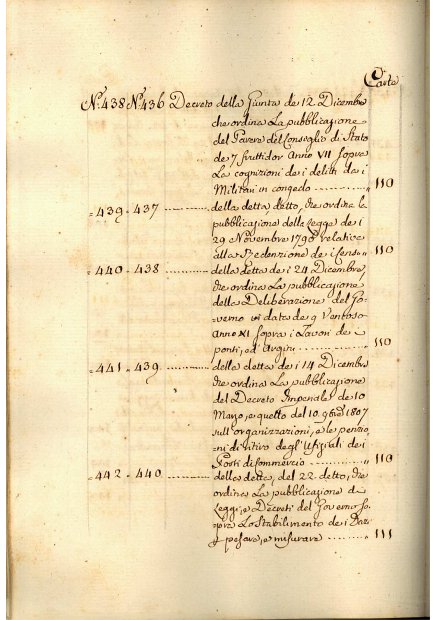 Carte
N.° 438 N.° 436 Decreto della Giunta de 12 Dicembre
che ordina La pubblicazione
del Parere del Conseglio di Stato
de 7 fruttidor Anno VII sopra
La cognizione de i delitti de i
Militari in congedo .......... " 110
= 439 - 437 .......... della detta, detto, che ordina la
pubblicazione della Legge de i
29 Novembre 1790 relative
alla Redenzione de i Censi " 110
= 440 - 438 .......... della detta de i 24 Dicembre,
che ordina La pubblicazione
della Deliberazione del Go=
verno in data de 9 Ventoso
Anno XI sopra i Lavori de
ponti, ed Argini .......... " 110
= 441 - 439 .......... della detta de i 14 Dicembre
che ordina La pubblicazione
del Decreto Imperiale de 10
Marzo, e quello del 10. 9bre 1807
sull'organizzazioni, e le penzio
=ni di ritiro degl'Ufiziali de i
Porti di Commercio .......... " 110
= 442 - 440 .......... della detta, del 22. detto, che
ordina La pubblicazione di
Leggi, e Decreti del Governo so=
pra Lo Stabilimento de i Dazi
pesare, e misurare .......... " 111